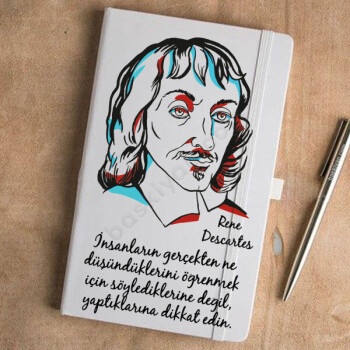 Rene
Descartes
İnsanların gerçekten ne
düşündüklerini ögrenmek
için söylediklerine degil,
yaptıklarına dikkat edin.